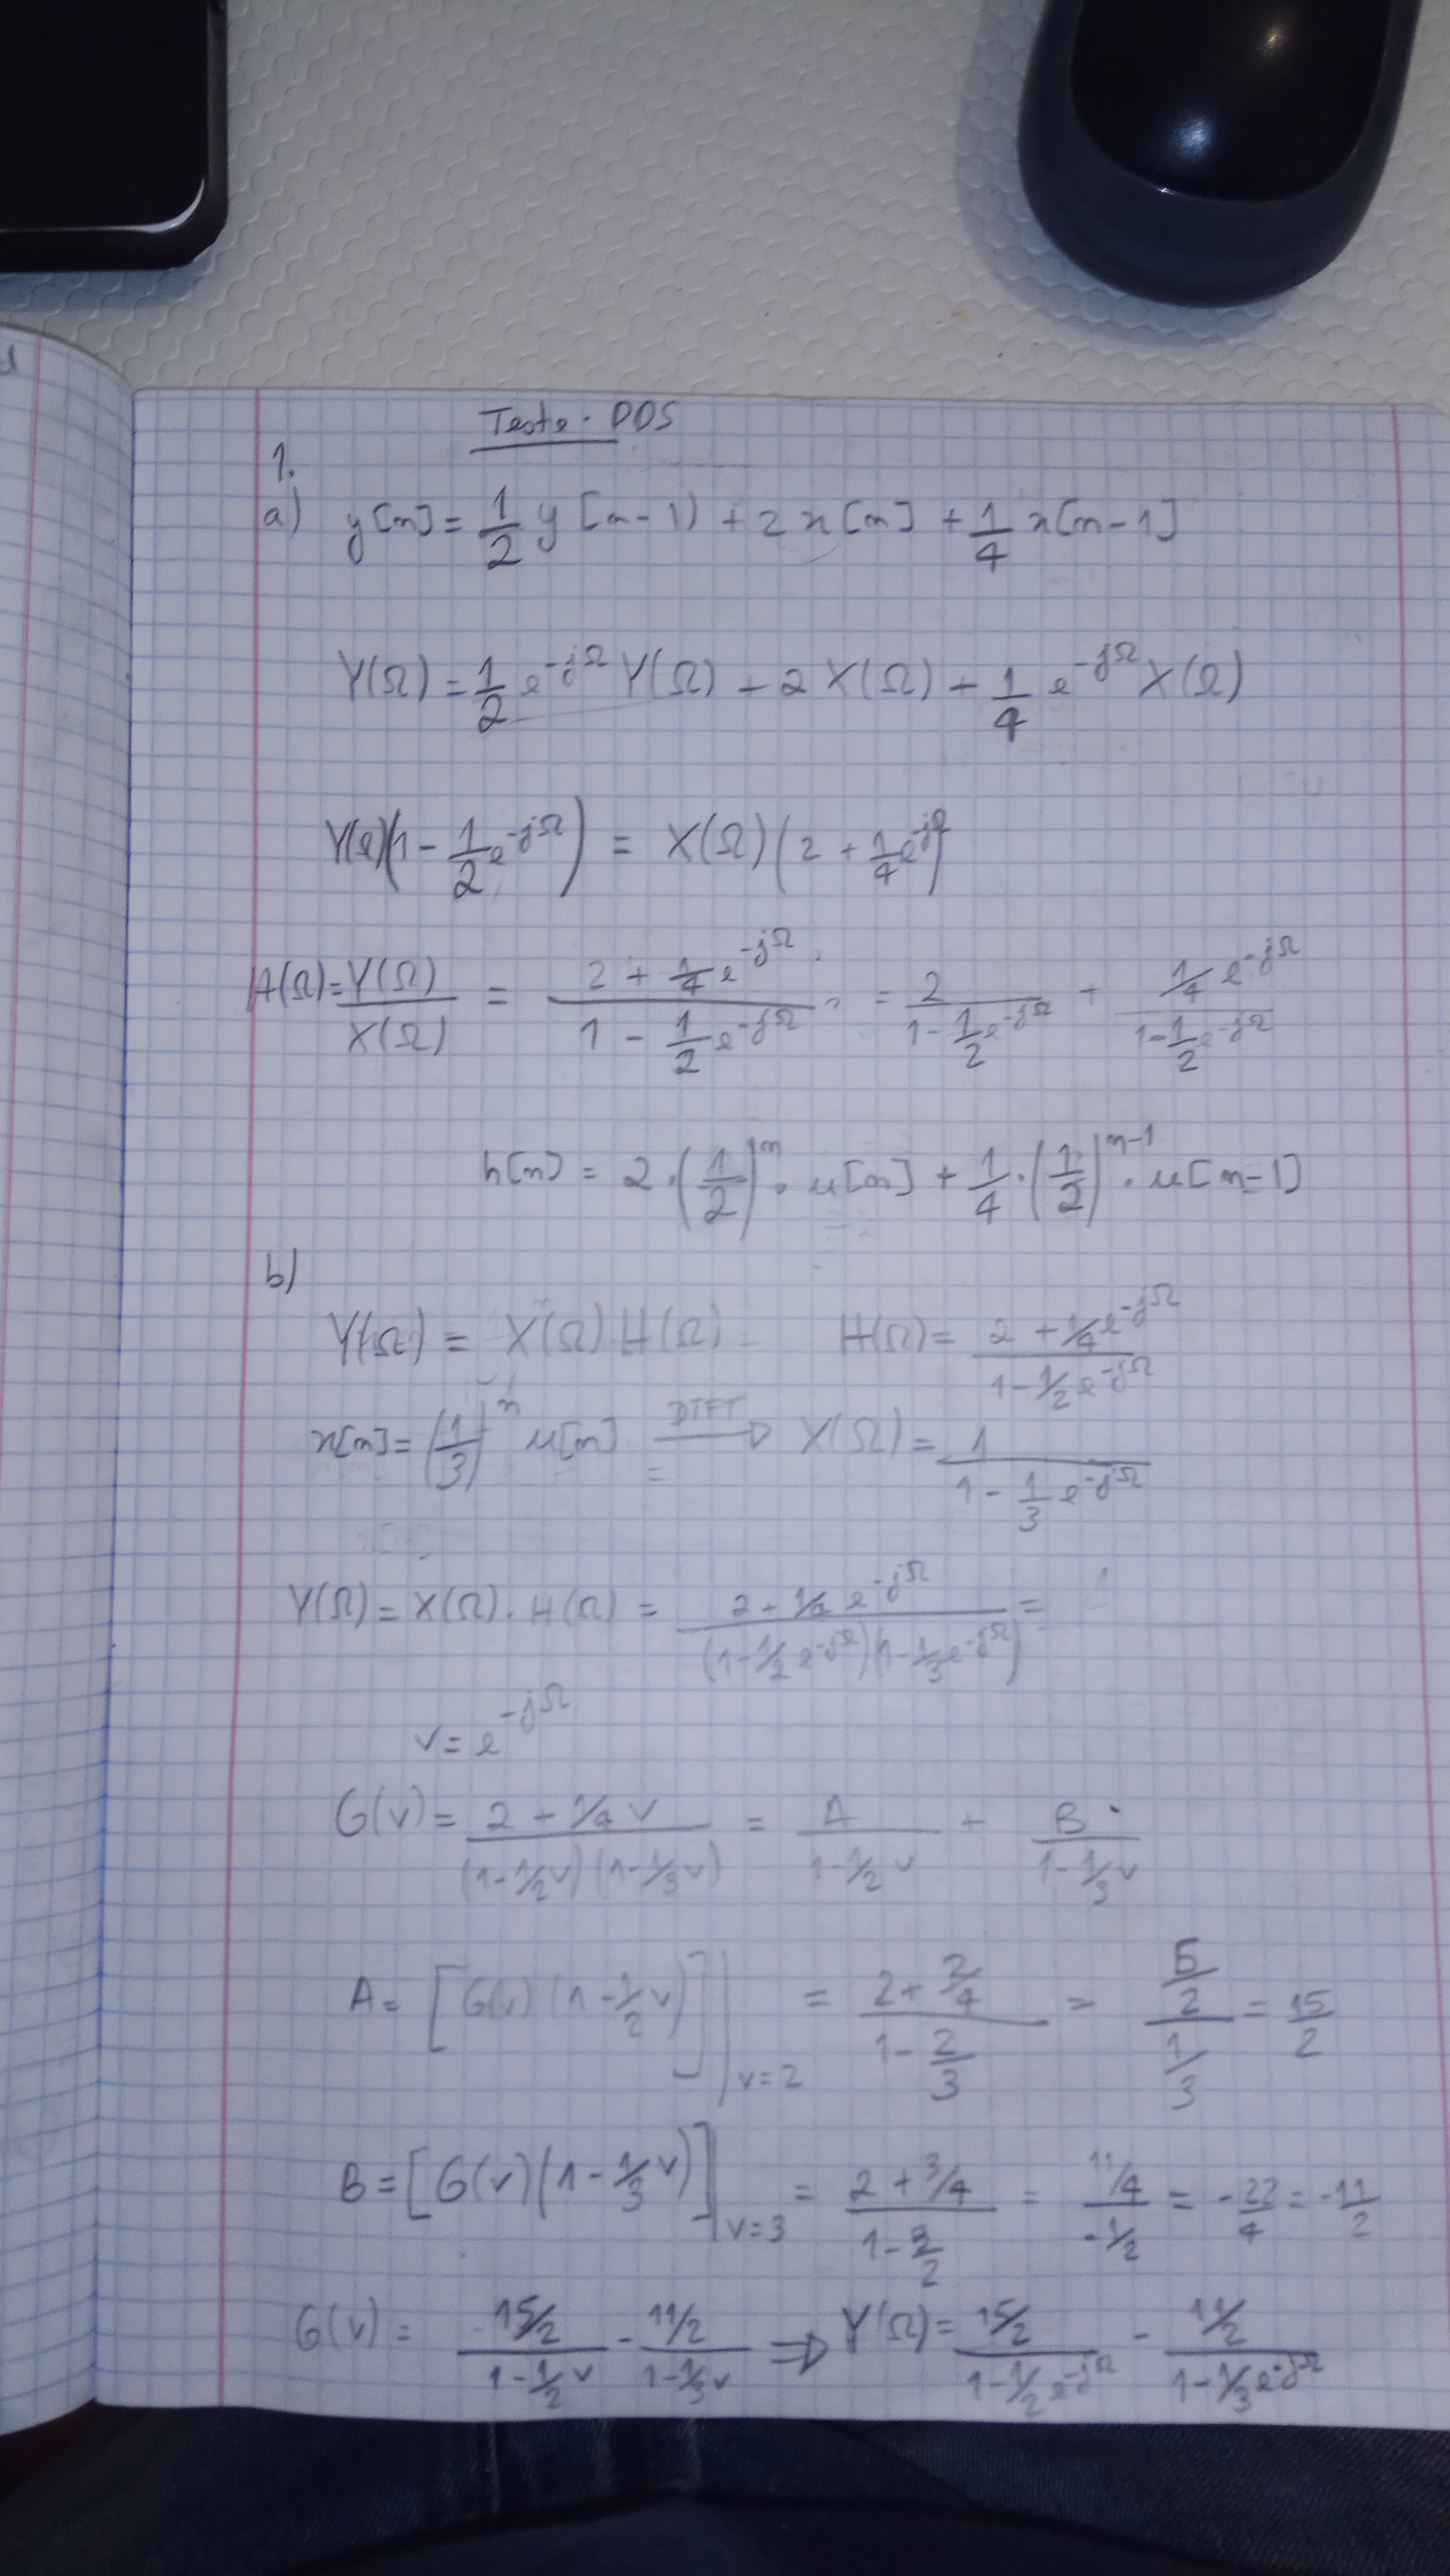 Teste. PDS
1.
a) y[n] = 1/2 y[n-1) + 2 x[n] + 1/4 x[n-1]
Y(Ω) = 1/2 e^-jΩ Y(Ω) + 2 X(Ω) + 1/4 e^-jΩ X(Ω)
Y(Ω)(1 - 1/2 e^-jΩ) = X(Ω)(2 + 1/4 e^-jΩ)
H(Ω) = Y(Ω)/X(Ω) = (2 + 1/4 e^-jΩ)/(1 - 1/2 e^-jΩ) = 2/(1 - 1/2 e^-jΩ) + (1/4 e^-jΩ)/(1 - 1/2 e^-jΩ)
h[n] = 2 · (1/2)^n · u[n] + 1/4 · (1/2)^n-1 · u[n-1]
b)
Y(Ω) = X(Ω) H(Ω) H(Ω) = (2 + 1/4 e^-jΩ)/(1 - 1/2 e^-jΩ)
x[n] = (1/3)^n u[n] DTFT → X(Ω) = 1/(1 - 1/3 e^-jΩ)
Y(Ω) = X(Ω) · H(Ω) = (2 + 1/4 e^-jΩ)/((1 - 1/2 e^-jΩ)(1 - 1/3 e^-jΩ)) =
v = e^-jΩ
G(v) = (2 + 1/4 v)/((1 - 1/2 v)(1 - 1/3 v)) = A/(1 - 1/2 v) + B/(1 - 1/3 v)
A = [G(v)(1 - 1/2 v)]|v=2 = (2 + 2/4)/(1 - 2/3) = (5/2)/(1/3) = 15/2
B = [G(v)(1 - 1/3 v)]|v=3 = (2 + 3/4)/(1 - 3/2) = (11/4)/(-1/2) = -22/4 = -11/2
G(v) = (15/2)/(1 - 1/2 v) - (11/2)/(1 - 1/3 v) ⇒ Y(Ω) = (15/2)/(1 - 1/2 e^-jΩ) - (11/2)/(1 - 1/3 e^-jΩ)